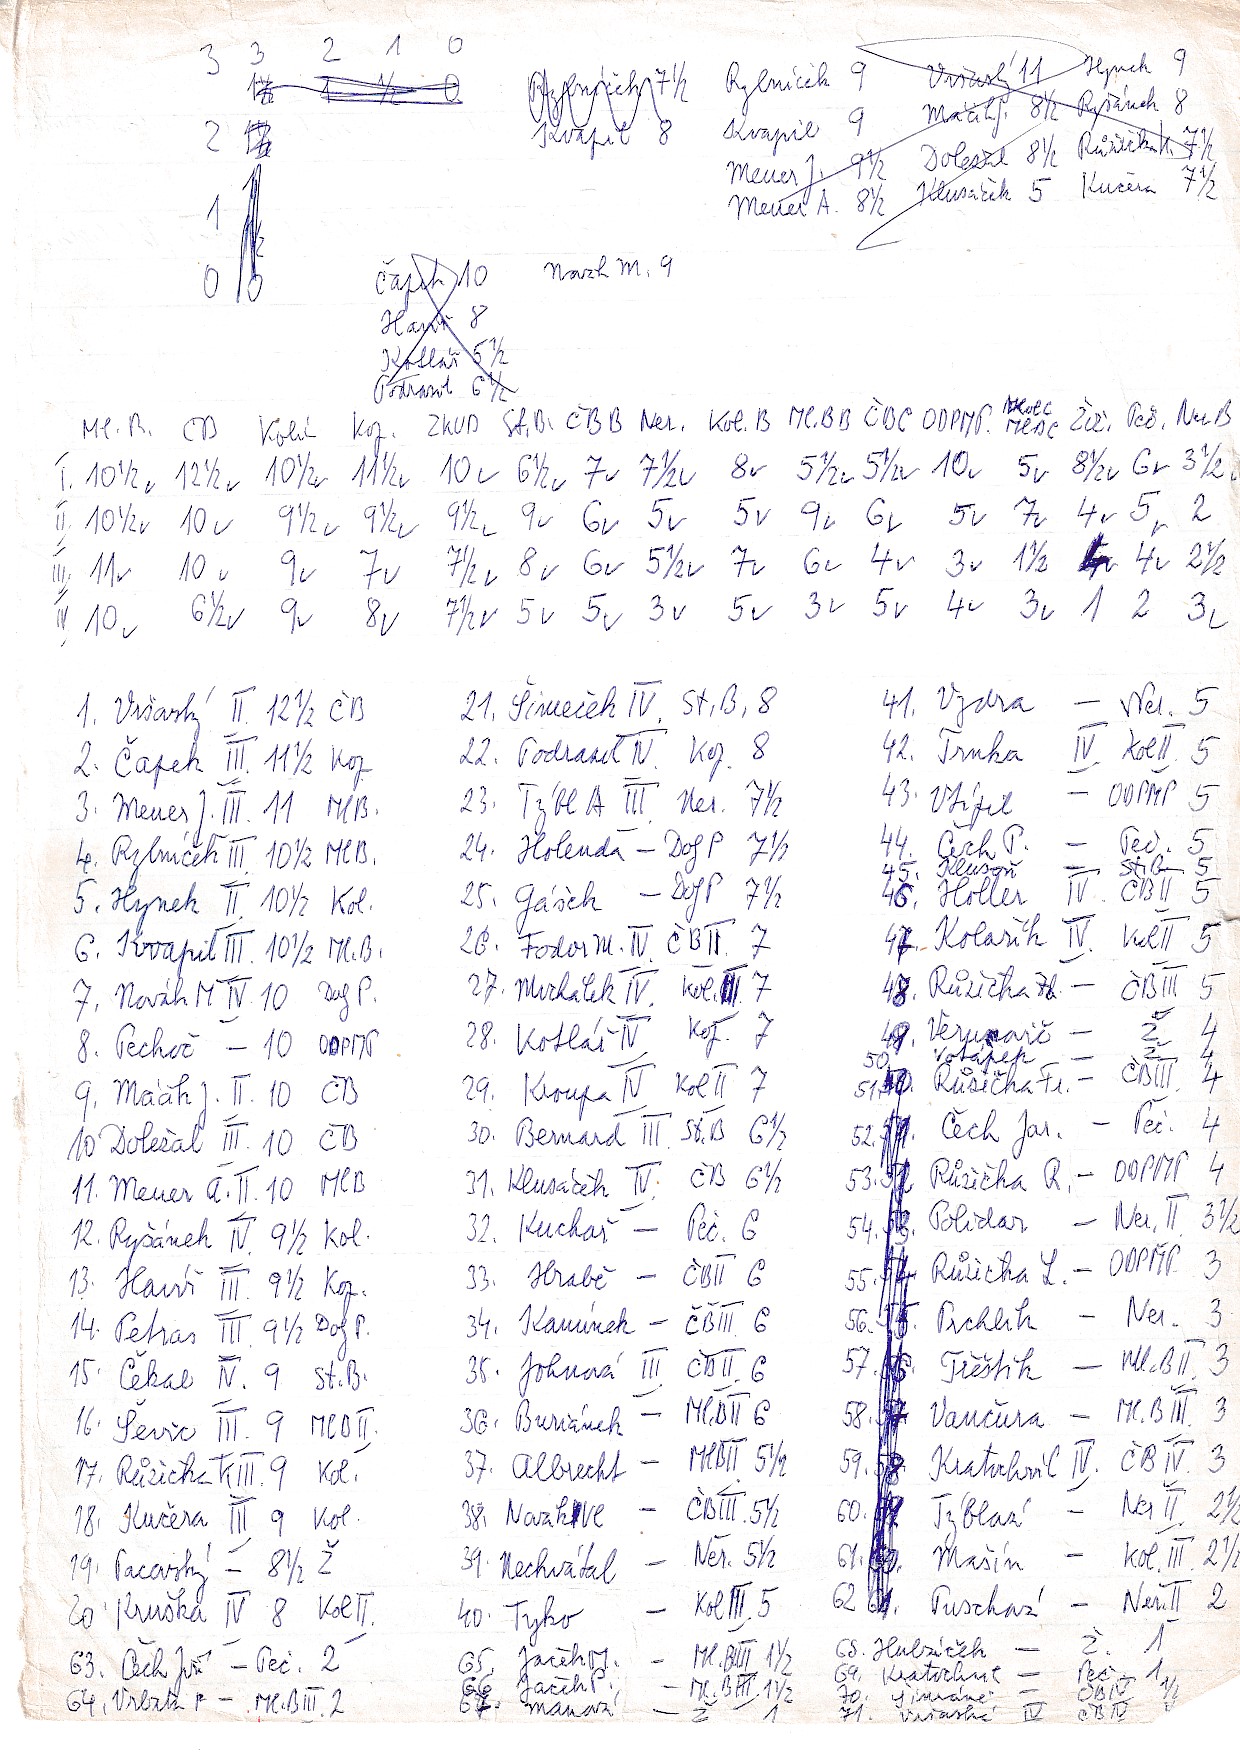 3 3 2 1 0
2
1
0 0
Rylniček 7½ Rylniček 9 Vršanský 11 Hynek 9
Kvapil 8 Kvapil 9 Macák J. 8½ Ryšánek 8
Meuer J. 9½ Doležal 8½ Růžička K. 7½
Meuer A. 8½ Klusáček 5 Kučera 7½
Čapek 10 Novák M. 9
Havíř 8
Kotlář 5½
Podrazil 6½
Ml.B. ČB Kolí Koj. ZKUD St.B. ČBB Ner. Kol.B Ml.BB ČBC ODPMP. Ml.BC Žiž. Peč. Ner.B
I. 10½ 12½ 10½ 11½ 10 6½ 7 7½ 8 5½ 5½ 10 5 8½ 6 3½
II. 10½ 10 9½ 9½ 9½ 9 6 5 5 9 6 5 7 4 5 2
III. 11 10 9 7 7½ 8 6 5½ 7 6 4 3 1½ 4 4 2½
IV. 10 6½ 9 8 7½ 5 5 3 5 3 5 4 3 1 2 3
1. Vršanský II. 12½ ČB
2. Čapek III. 11½ Koj
3. Meuer J. III. 11 Ml B.
4. Rylniček III. 10½ Ml B.
5. Hynek II. 10½ Kol.
6. Kvapil III. 10½ Ml.B.
7. Novák M IV. 10 Doj P.
8. Pechoč – 10 ODPMP
9. Macák J. II. 10 ČB
10 Doležal III. 10 ČB
11. Meuer A. II. 10 Ml B
12. Ryšánek IV. 9½ Kol.
13. Havíř III. 9½ Koj.
14. Petras III. 9½ Doj P.
15. Čekal IV. 9 St.B.
16. Ševic III. 9 Ml B II.
17. Růžička K III. 9 Kol.
18. Kučera III 9 Kol.
19. Pacovský – 8½ Ž
20 Kruška IV 8 Kol II.
63. Čech Jiří – Peč. 2
64. Vrbata P – Ml.B III. 2
21. Šimeček IV. St.B. 8
22. Podrazil IV. Koj. 8
23. Týbl A III. Ner. 7½
24. Holenda – Doj P 7½
25. Gášek – Doj P 7½
26. Fodor M. IV. ČB II. 7
27. Michálek IV. Kol. III. 7
28. Kotlář IV Koj. 7
29. Kroupa IV Kol II 7
30. Bernard III. St.B 6½
31. Klusáček IV. ČB 6½
32. Kuchař – Peč. 6
33. Hrabě – ČB II 6
34. Kamínek – ČB III. 6
35. Johnová III. ČB II. 6
36. Buriánek – Ml.B II 6
37. Albrecht – Ml B II 5½
38. Novák Vl – ČB III. 5½
39. Nechvátal – Ner. 5½
40. Tyko – Kol III. 5
65. Jacák M. – Ml.B III 1½
66 Jacák P. – Ml.B III. 1½
67. Manová – Ž 1
41. Vydra – Ner. 5
42. Trnka IV. Kol II. 5
43. Vtípil – ODPMP 5
44. Čech P. – Peč. 5
45. Klusoň – St.B – 5
46. Holler IV. ČB II 5
47. Kolařík IV. Kol II 5
48. Růžička St. – ČB III 5
49. Verunovič – Ž. 4
50. Votápek – Ž 4
51. Růžička Fr. – ČB III. 4
52. Čech Jar. – Peč. 4
53. Růžička R. – ODPMP 4
54. Polidar – Ner. II. 3½
55. Růžička L. – ODPMP. 3
56. Prchlík – Ner. 3
57. Třeštík – Ml.B II. 3
58. Vančura – Ml.B III. 3
59. Kratochvíl IV. ČB IV. 3
60. Týblová – Ner II. 2½
61. Mašín – Kol. III. 2½
62 Puschová – Ner. II 2
68. Hubáček – Ž. 1
69. Kratochvíl – Peč. 1
70. – ČB IV ½
71. IV ČB IV